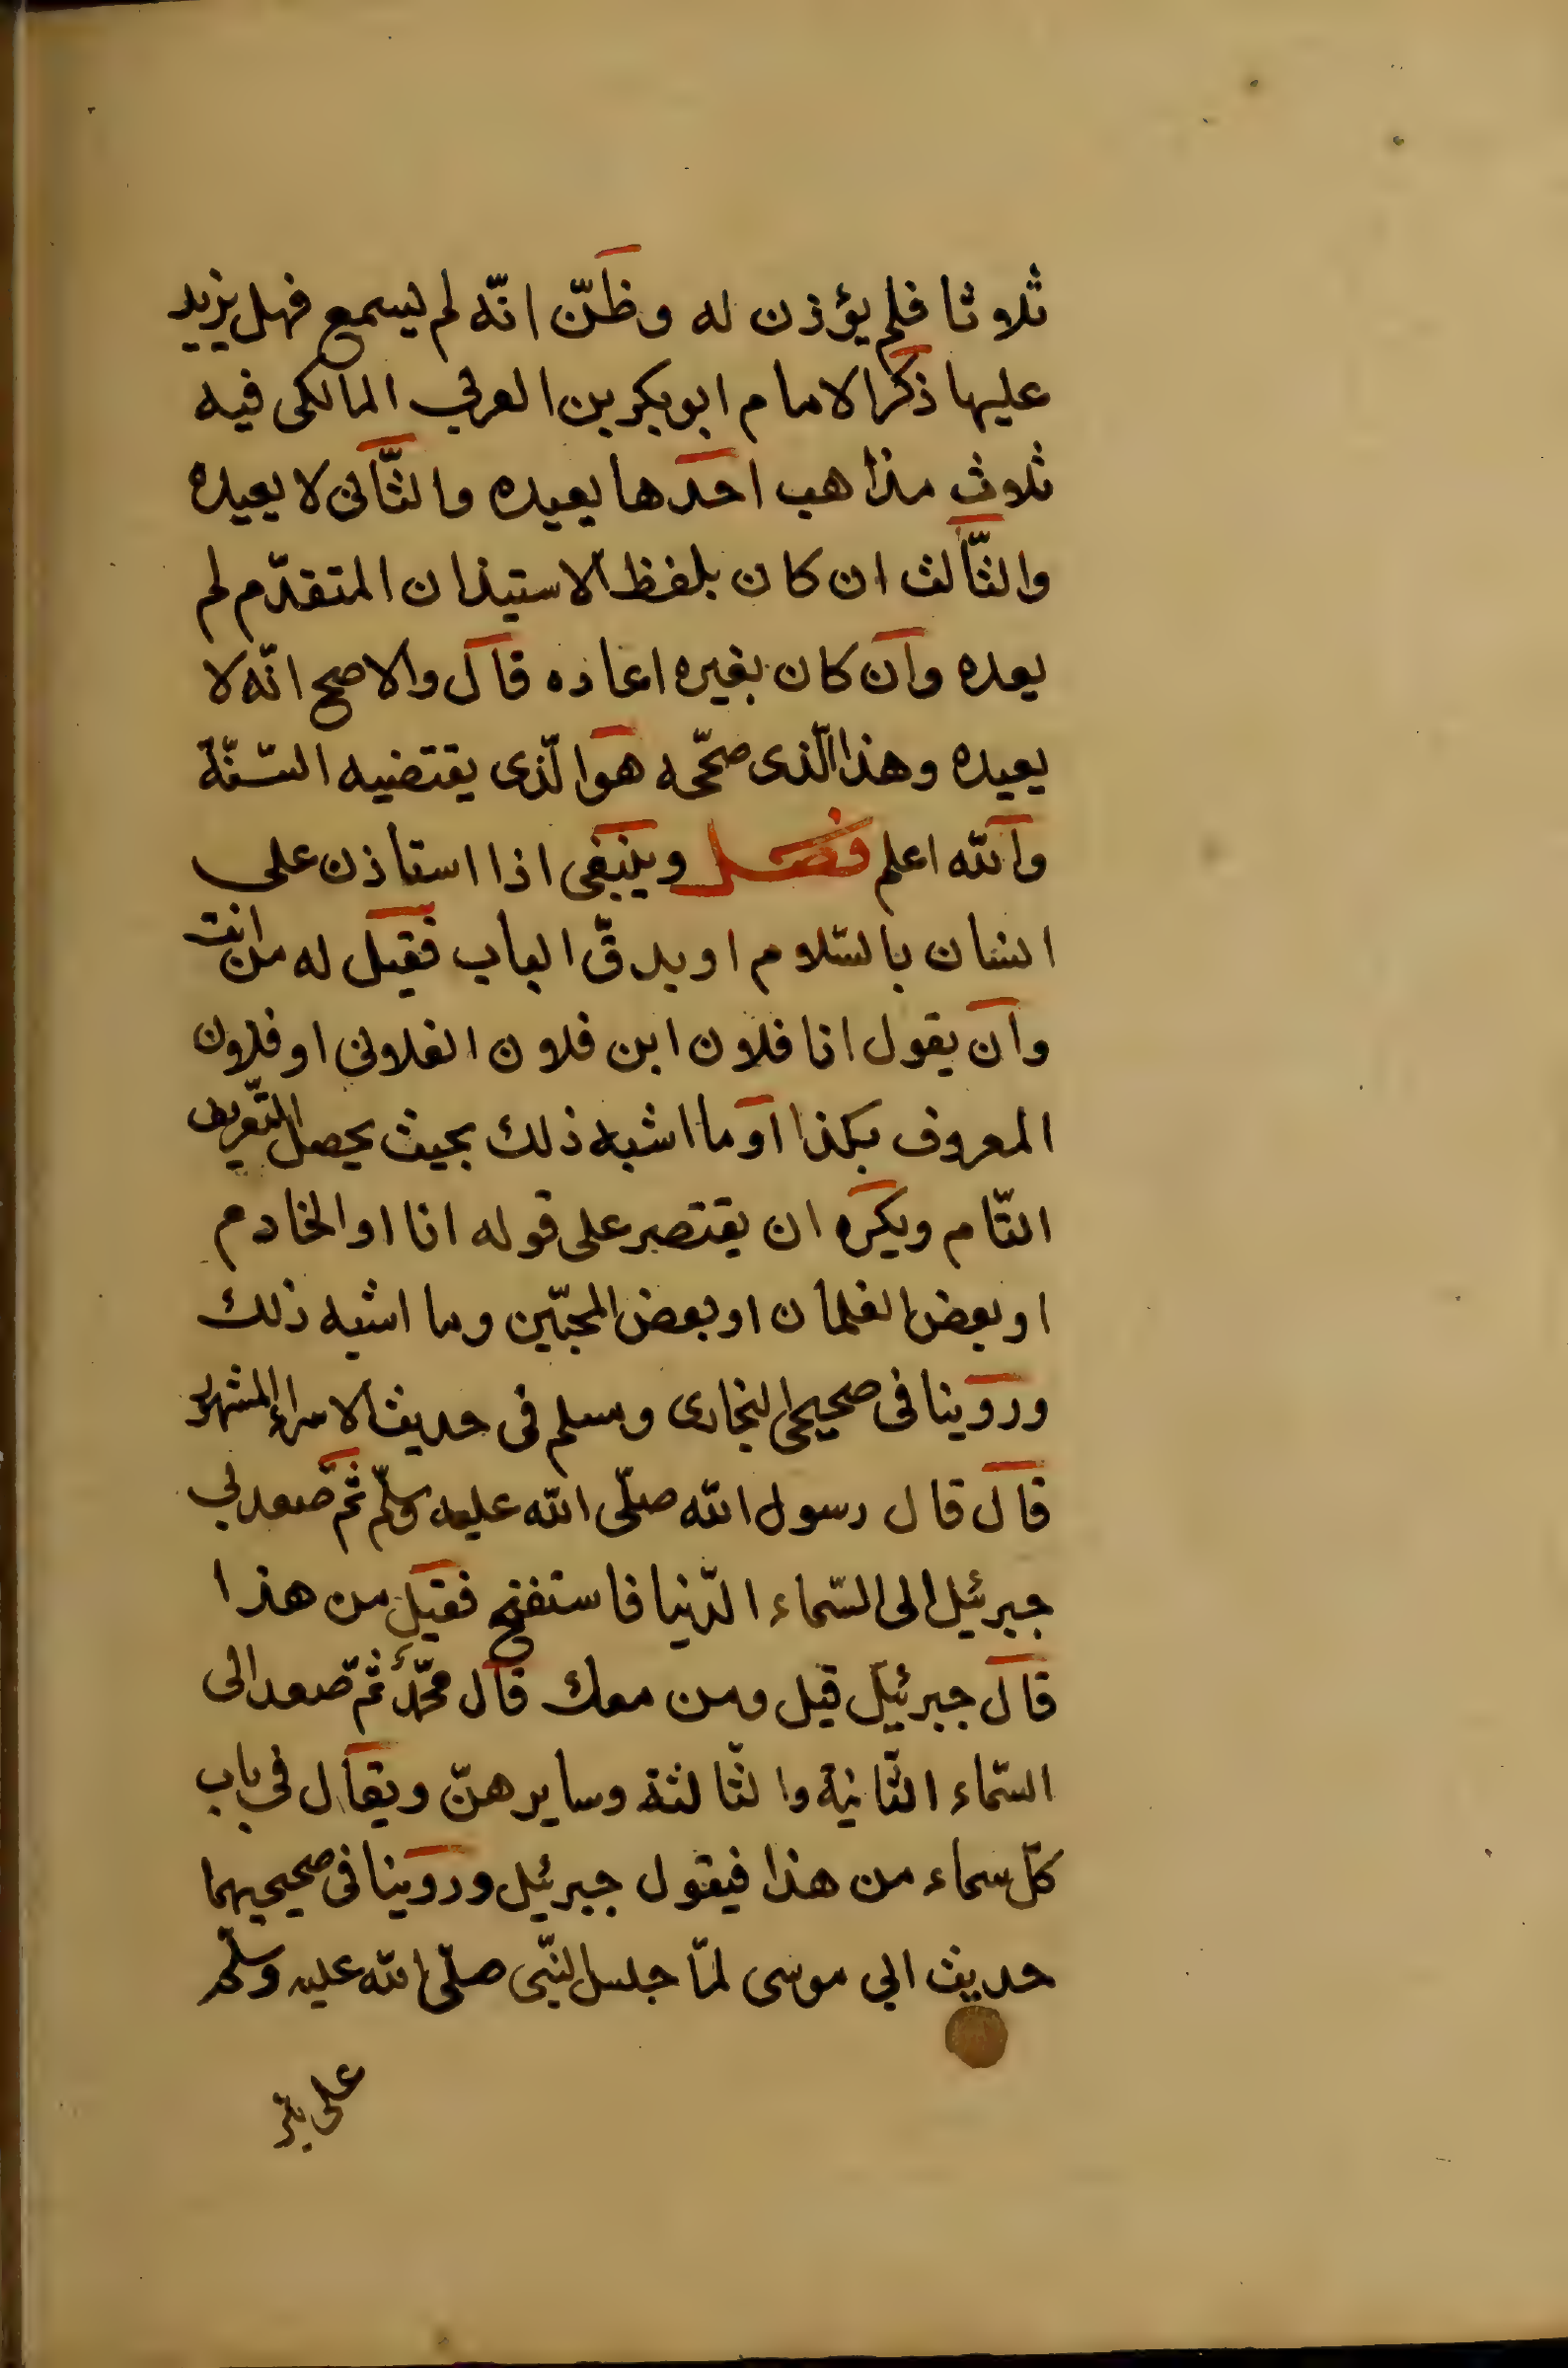 ثلاثا فلم يؤذن له وظنّ انّه لم يسمع فهل يزيد
عليها ذكر الامام ابو بكر بن العربي المالكى فيه
ثلاث مذاهب احدها يعيده والثّانى لا يعيده
والثّالث ان كان بلفظ الاستيذان المتقدّم لم
يعده وان كان بغيره اعاده قال والاصح انّه لا
يعيده وهذا الّذى صحّحه هو الّذى يقتضيه السّنّة
والله اعلم فصل وينبغى اذا استاذن على
انسان بالسّلام او بدقّ الباب فقيل له من انت
وان يقول انا فلان ابن فلان الفلانى او فلان
المعروف بكذا او ما اشبه ذلك بحيث يحصل التّعريف
التّام ويكره ان يقتصر على قوله انا او الخادم
او بعض الغلمان او بعض المحبّين وما اشبه ذلك
وروينا فى صحيحى البخارى ومسلم فى حديث الاسراء المشهور
قال قال رسول الله صلّى الله عليه وسلّم ثمّ صعد بي
جبرئيل الى السّماء الدّنيا فاستفتح فقيل من هذا
قال جبرئيل قيل ومن معك قال محمّد ثمّ صعد الى
السّماء الثّانية والثّالثة وسايرهنّ ويقال فى باب
كلّ سماء من هذا فيقول جبرئيل وروينا فى صحيحيهما
حديث ابي موسى لمّا جلس النّبى صلّى الله عليه وسلّم
على بئر